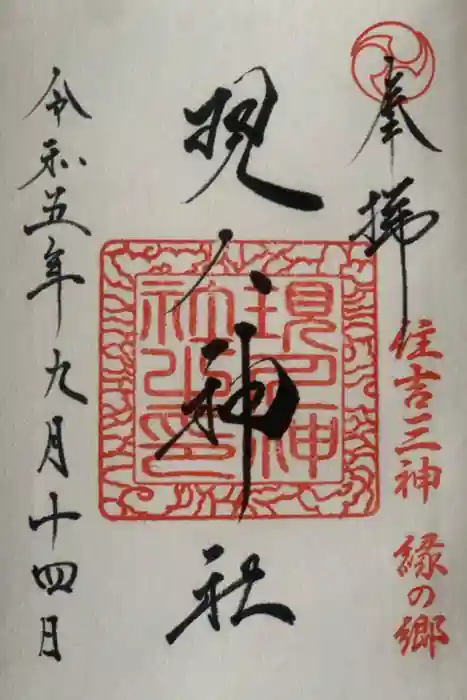 奉拝
住吉三神 縁の郷
現人神社
現人神社之印
令和五年九月十四日